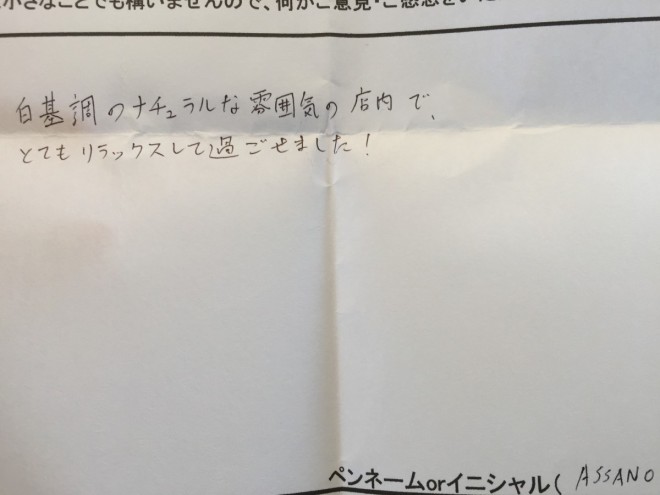 小さなことでも構いませんので、何かご意見・ご感想をいた
白基調のナチュラルな雰囲気の店内で、
とてもリラックスして過ごせました!
ペンネームorイニシャル( ASSANO